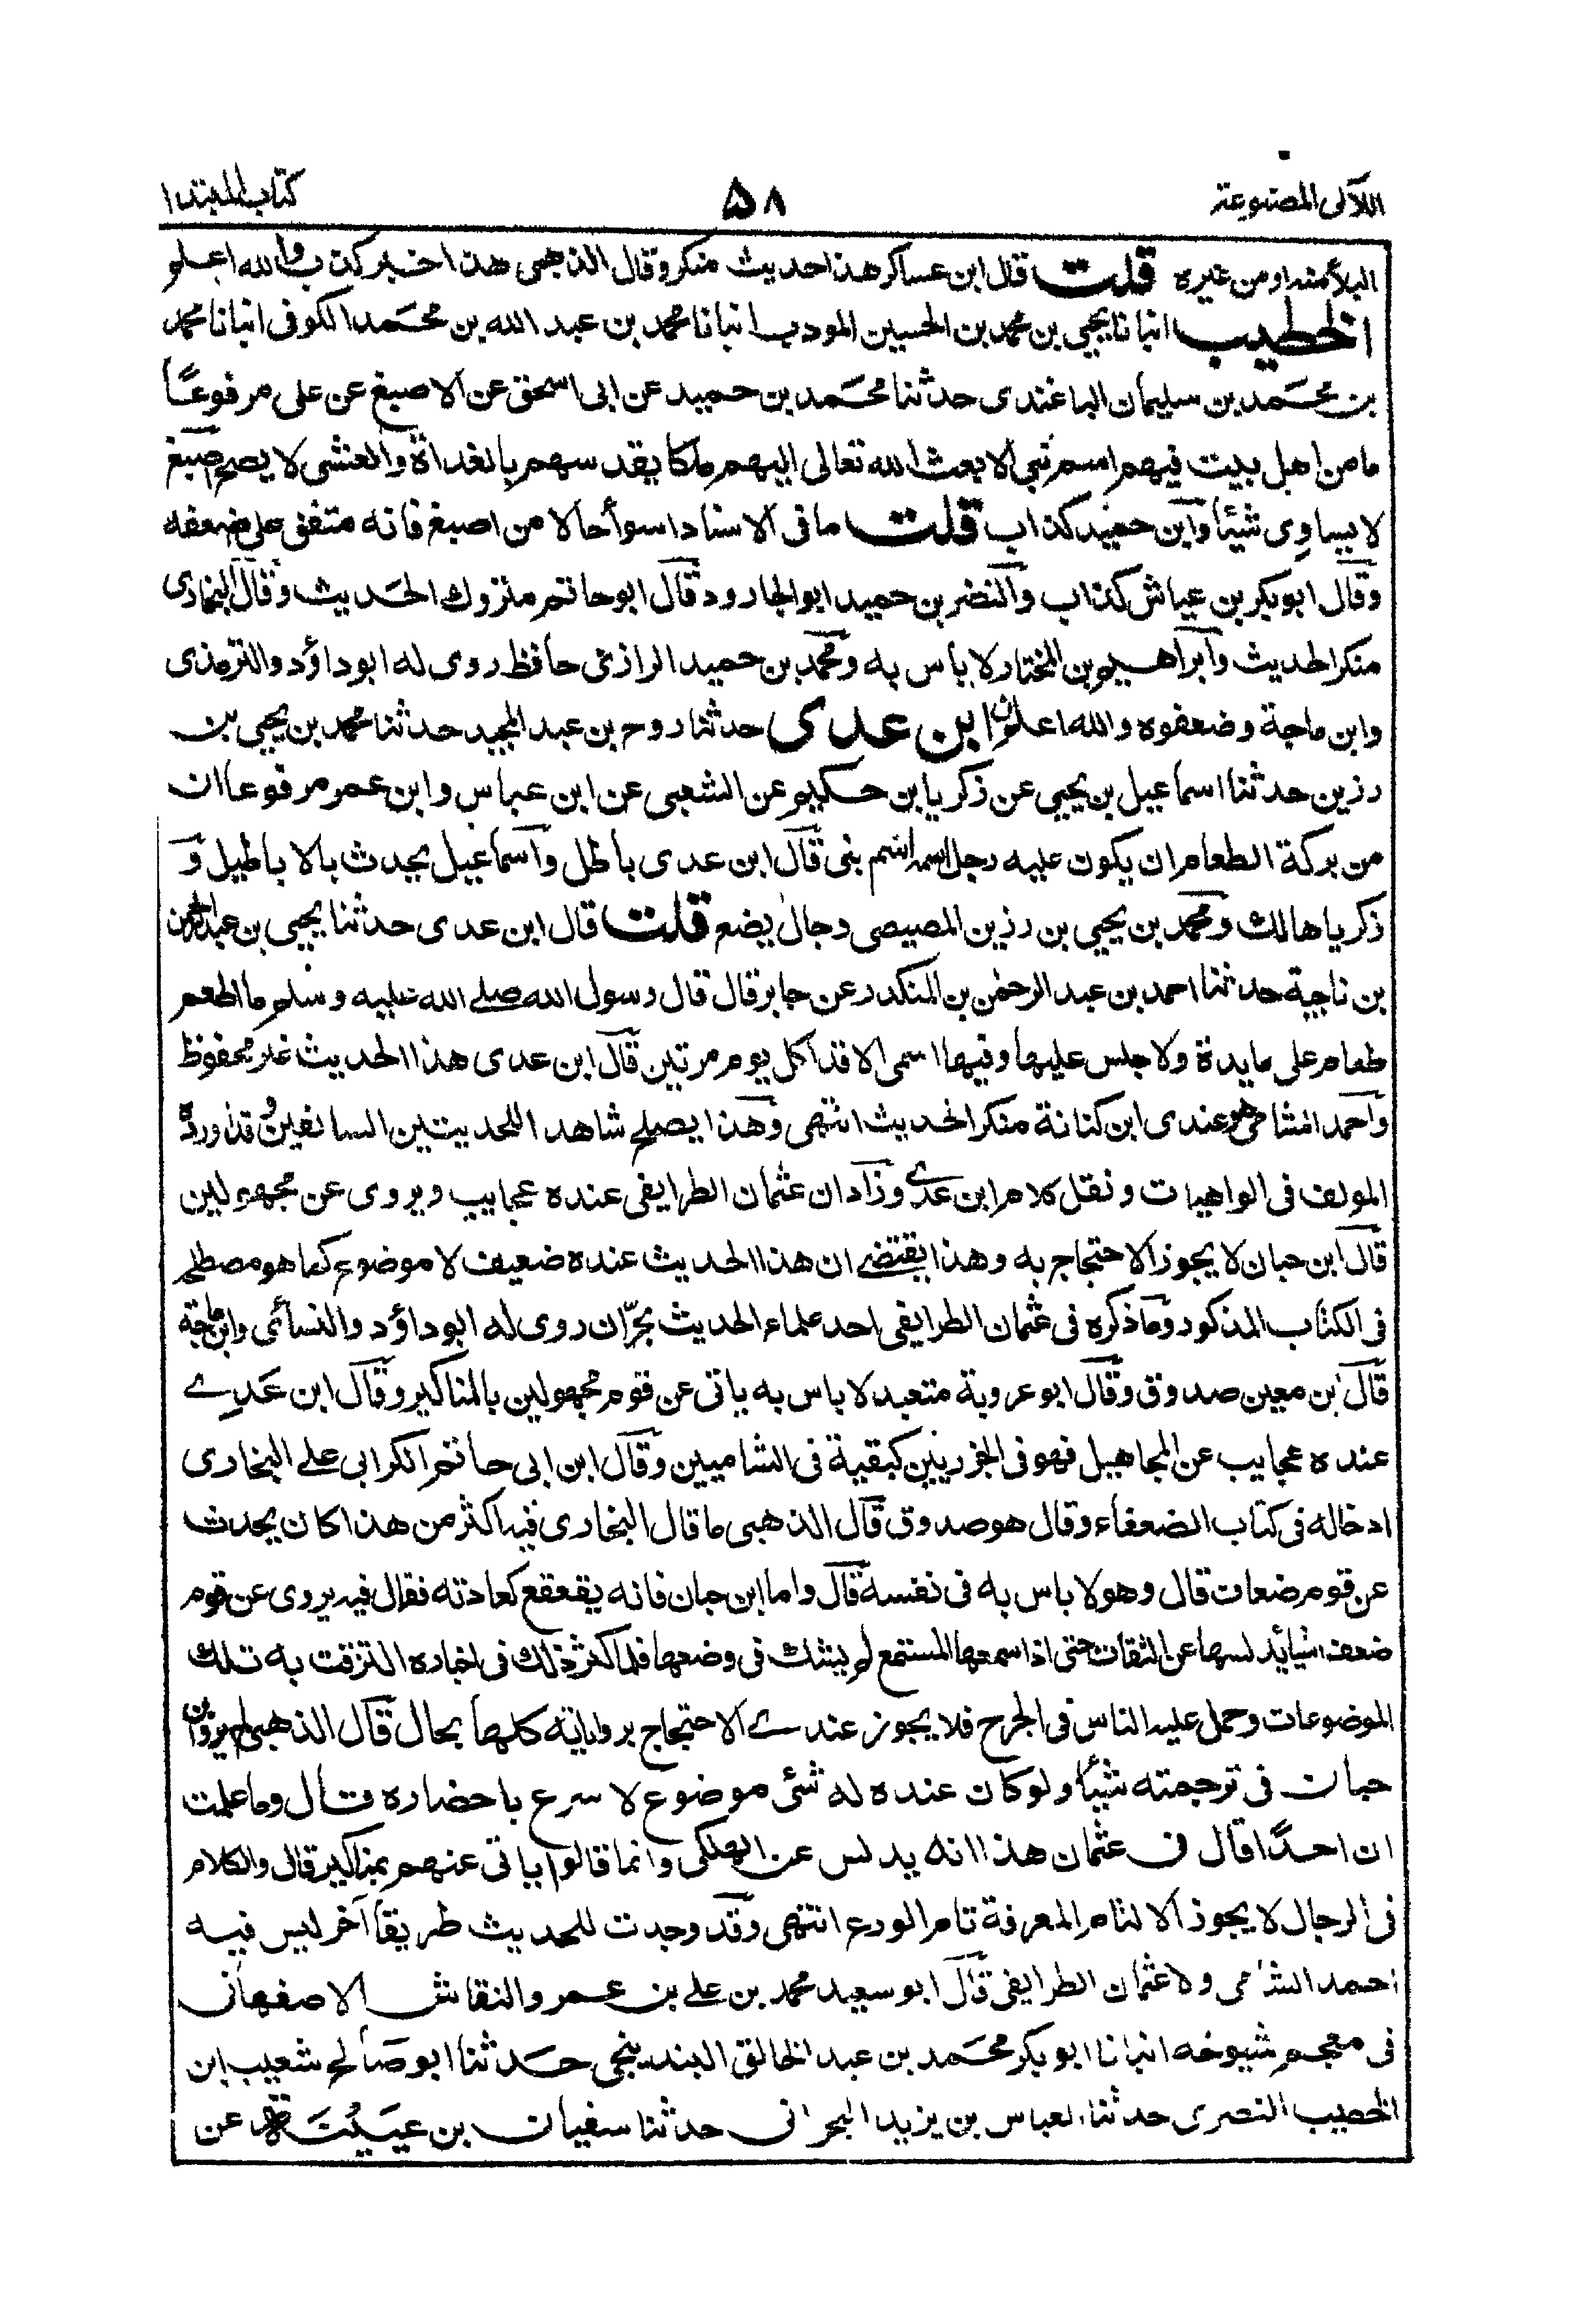 اللآلى المصنوعة
۵۸
كتاب المبتدا
البلأ منه او من غيره قلت قال ابن عساكر هذا حديث منكر وقال الذهبى هذا خبر كذب والله اعلم
الخطيب انبانا يحيى بن محمد بن الحسين المودب انبانا محمد بن عبد الله بن محمد الكوفى انبانا محمد
بن محمد بن سليمان الباغندى حدثنا محمد بن حميد عن ابى اسحق عن الاصبغ عن على مرفوعًا
ما من اهل بيت فيهم اسم نبى الا بعث الله تعالى اليهم ملكا يقدسهم بالغداة والعشى لا يصح اصبغ
لا يساوى شيئا وابن حميد كذاب قلت ما فى الاسناد اسوأ حالا من اصبغ فانه متفق على ضعفه
وقال ابو بكر بن عياش كذاب والنضر بن حميد ابو الجارود قال ابو حاتم متروك الحديث وقال البخارى
منكر الحديث وابراهيم بن المختار لا باس به ومحمد بن حميد الرازى حافظ روى له ابو داؤد والترمذى
وابن ماجة وضعفوه والله اعلم ابن عدى حدثنا روح بن عبد المجيد حدثنا محمد بن يحيى بن
رزين حدثنا اسماعيل بن يحيى عن زكريا بن حكيم عن الشعبى عن ابن عباس وابن عمر مرفوعا ان
من بركة الطعام ان يكون عليه رجل اسمه اسم نبى قال ابن عدى باطل واسماعيل يحدث بالاباطيل و
زكريا هالك ومحمد بن يحيى بن رزين المصيصى دجال يضع قلت قال ابن عدى حدثنا يحيى بن عبد الرحمن
بن ناجية حدثنا احمد بن عبد الرحمن بن المنكدر عن جابر قال قال رسول الله صلے الله عليه وسلم ما اطعم
طعام على مايدة ولا جلس عليها وفيها اسمى الا قدا كل يوم مرتين قال ابن عدى هذا الحديث غير محفوظ
واحمد الشامى هو عندى ابن كنانة منكر الحديث انتهى وهذا يصلح شاهد اللحديتين السالفين وقد اورده
المولف فى الواهيات ونقل كلام ابن عدے وزاد ان عثمان الطرايفى عنده عجايب ويروى عن مجهولين
قال ابن حبان لا يجوز الاحتجاج به وهذا يقتضے ان هذا الحديث عنده ضعيف لا موضوع كما هو مصطلح
فى الكتاب المذكور وما ذكره فى عثمان الطرايفى احد علماء الحديث بحرّان روى له ابو داؤد والنسائى وابن ماجة
قال بن معين صدوق وقال ابو عروبة متعبد لا باس به ياتى عن قوم مجهولين بالمناكير وقال ابن عدے
عنده عجايب عن المجاهيل فهو فى الجزريين كبقية فى الشاميين وقال ابن ابى حاتم انكر ابى علے البخارى
ادخاله فى كتاب الضعفاء وقال هو صدوق قال الذهبى ما قال البخارى فيه اكثر من هذا كان يحدث
عن قوم ضعات قال وهو لا باس به فى نفسه قال واما ابن حبان فانه يقعقع كعادته فقال فيه يروى عن قوم
ضعف اشيا يدلسها عن الثقات حتى اذا سمعها المستمع لم يشك فى وضعها فلما كثر ذلك فى اخباره التزقت به تلك
الموضوعات وحمل عليه الناس فى الجرح فلا يجوز عندے الاحتجاج بروايته كلها بحال قال الذهبى لم يرو ابن
حبان فى ترجمته شيئا ولو كان عنده له شئى موضوع لا سرع باحضاره قال وما علمت
ان احدًا قال فى عثمان هذا انه يدلس عن الهلكى وانما قالوا ياتى عنهم بمناكير قال والكلام
فى الرجال لا يجوز الا لتام المعرفة تام الورع انتهى وقد وجدت للحديث طريقا آخر ليس فيه
احمد الشامى ولا عثمان الطرايفى قال ابو سعيد محمد بن علے بن عمرو النقاش الاصفهانى
فى معجم شيوخه انبانا ابو بكر محمد بن عبد الخالق البندنيجى حدثنا ابو صالح شعيب ابن
الخصيب النصرى حدثنا العباس بن يزيد البحرانى حدثنا سفيان بن عيينة عن